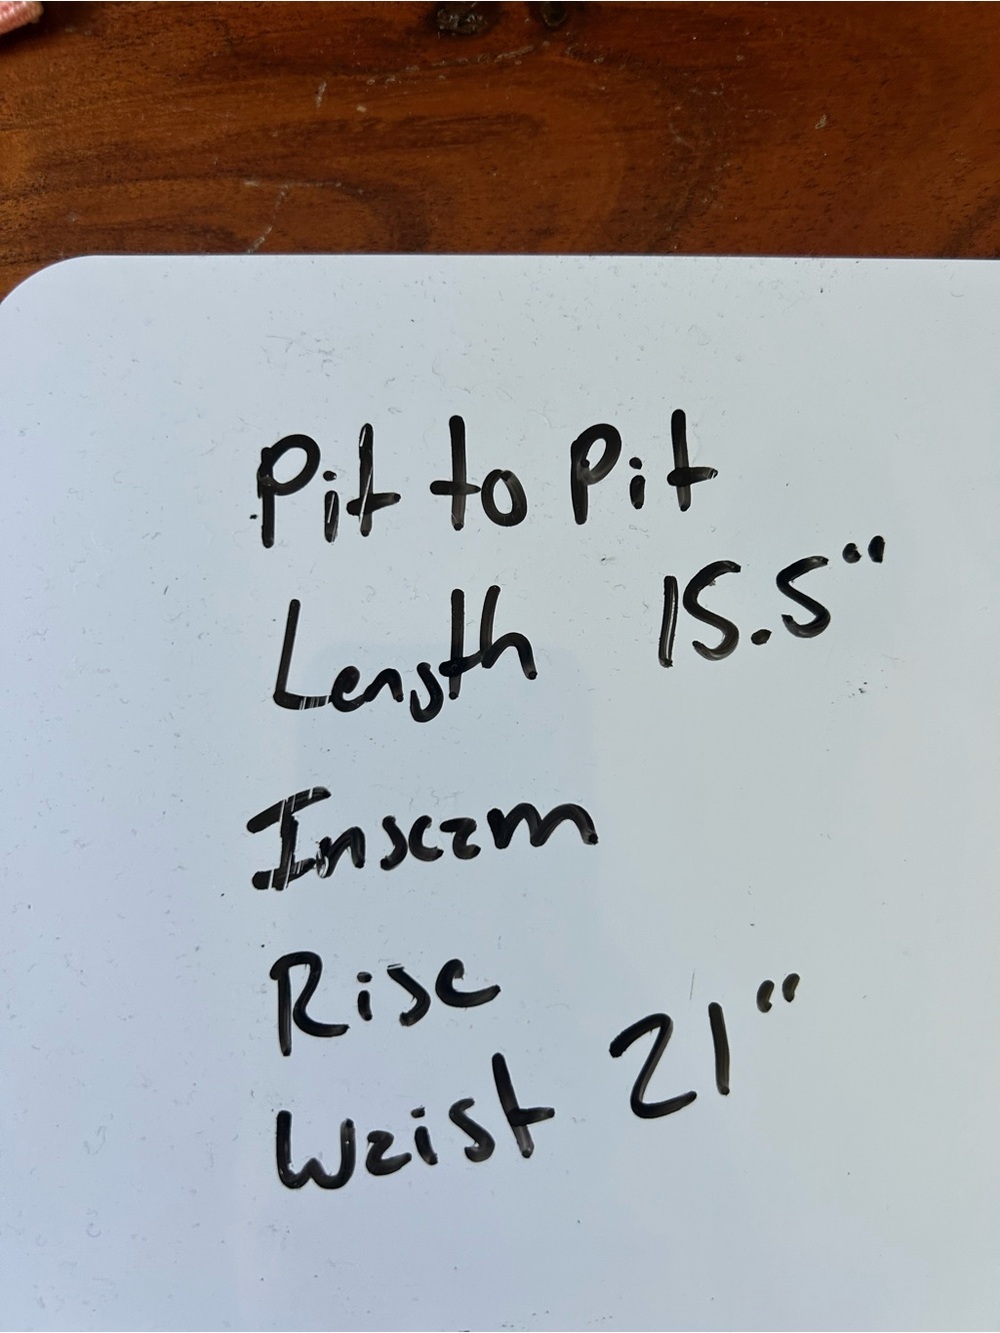 Pit to Pit
Length 15.5"
Inseam
Rise
Waist 21"